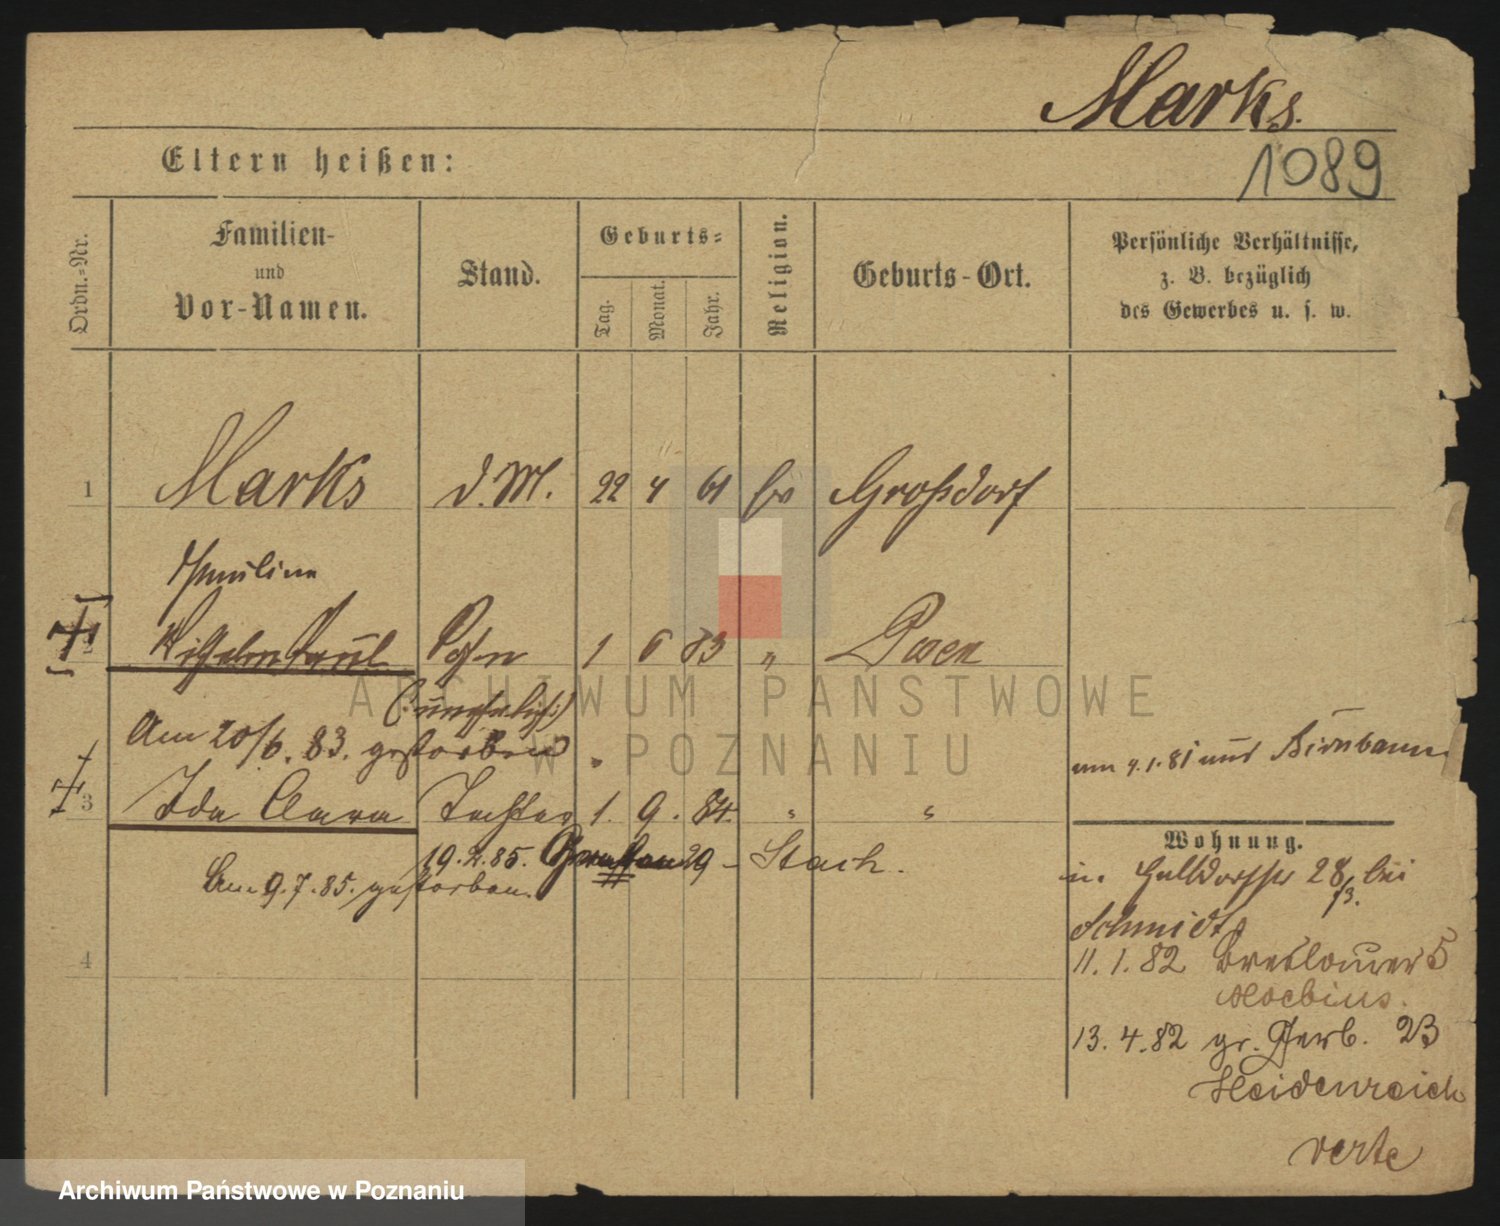 Marks.
1089
Eltern heißen:
Ordn.-Nr.
Familien-
und
Vor-Namen.
Stand.
Geburts-
Tag.
Monat.
Jahr.
Religion.
Geburts-Ort.
Persönliche Verhältnisse,
z. B. bezüglich
des Gewerbes u. s. w.
1 Marks d. M. 22 4 61 Großdorf
Pauline
2 Wilhelm Paul Sohn 1 6 83 " Posen
(unehelich)
Am 20/6. 83. gestorben.
3 Ida Clara Tochter 1. 9. 84. " "
19.2.85. 29 - Stach.
Am 9.7.85. gestorben.
4
am 9.1.81 aus Birnbaum
Wohnung.
in Halbdorfstr 28 bei
/3.
Schmidt
11. 1. 82 Breslauer 5
Moebius.
13. 4. 82 gr. Gerb. 23
Heidenreich
verte
ARCHIWUM PAŃSTWOWE
W POZNANIU
Archiwum Państwowe w Poznaniu